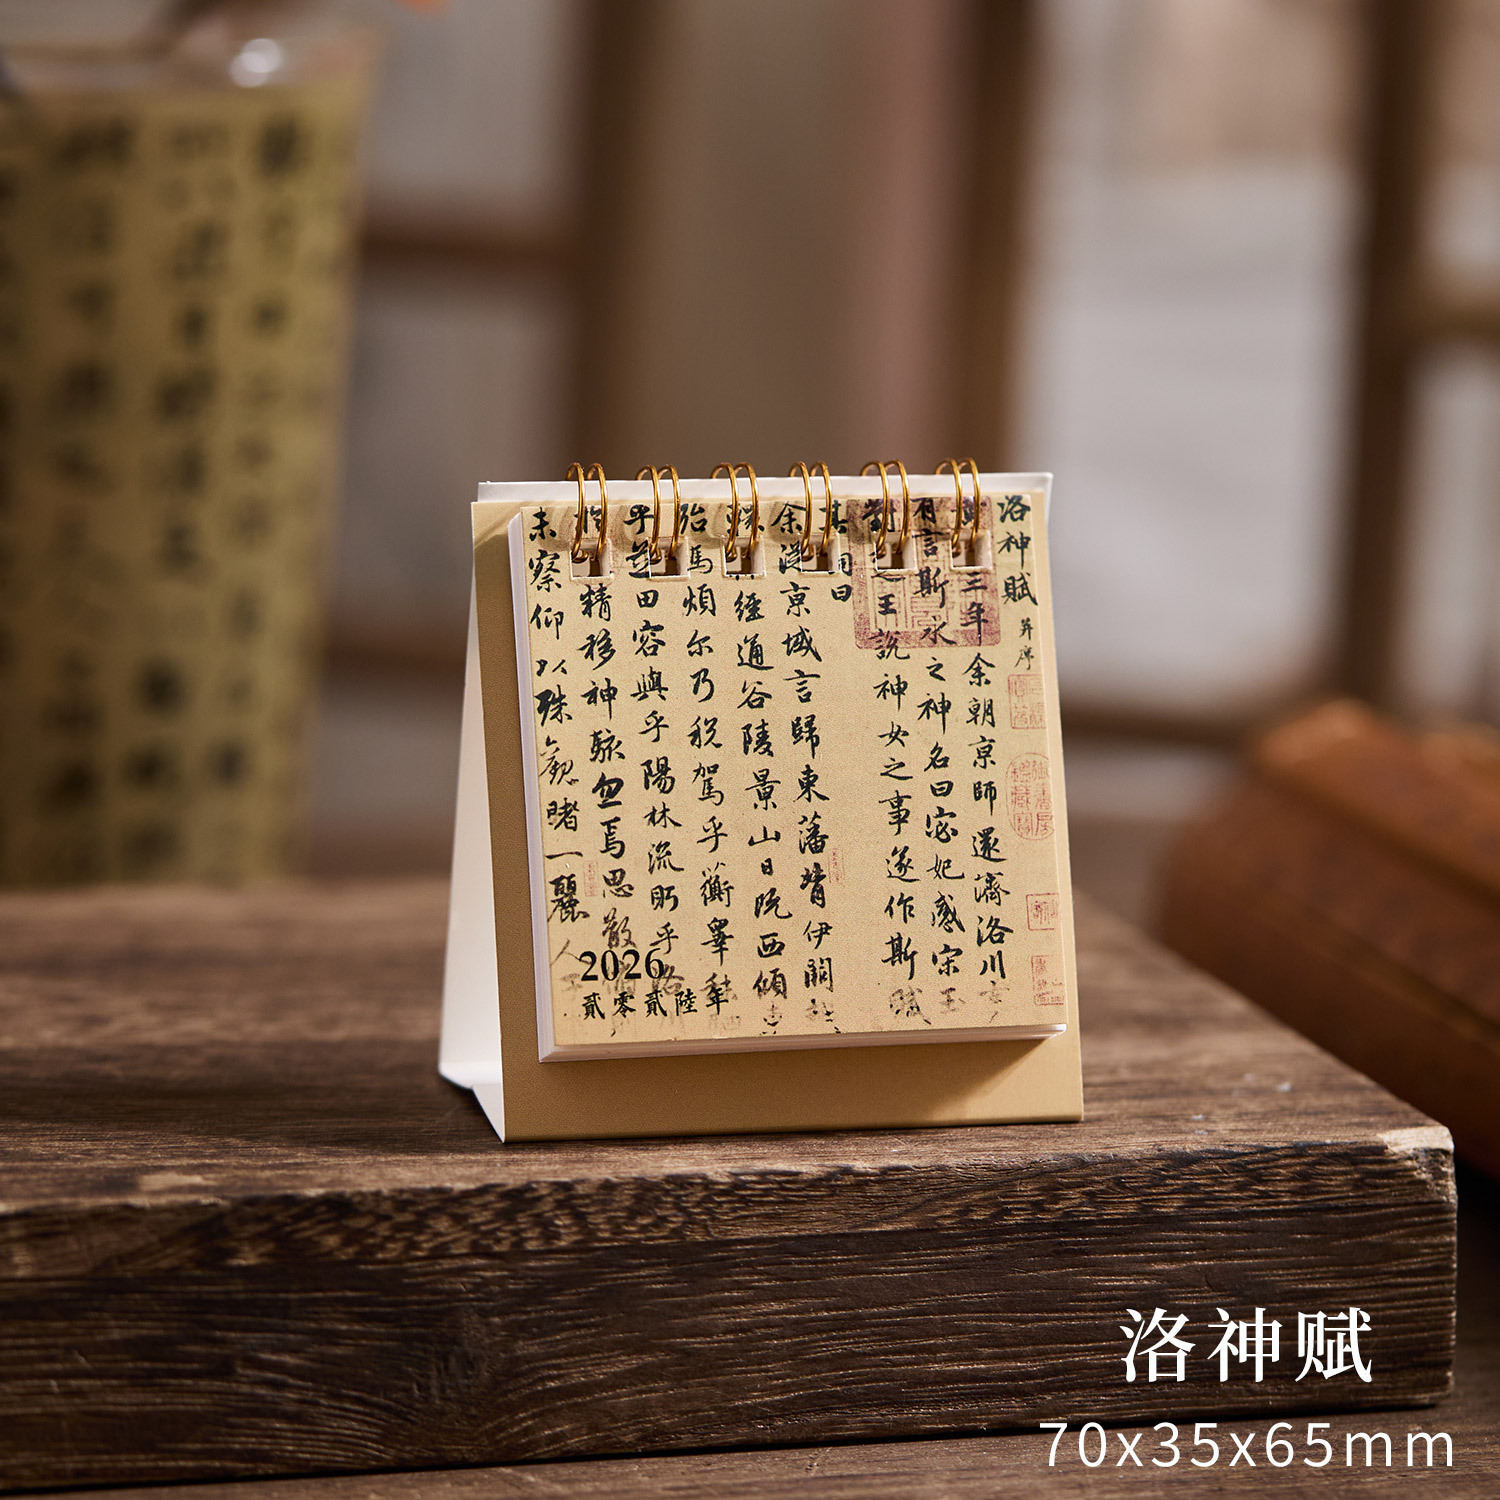 洛神賦 并序
三年余朝京師還濟洛川
有言斯水之神名曰宓妃感宋玉
對王說神女之事遂作斯賦
其詞曰
余從京域言歸東藩背伊闕
經通谷陵景山日既西傾
殆馬煩尔乃税駕乎蘅皋秣
乎芝田容與乎陽林流眄乎洛
精移神駭忽焉思散
未察仰以殊觀睹一麗人
2026
貳零貳陸年
洛神赋
70x35x65mm